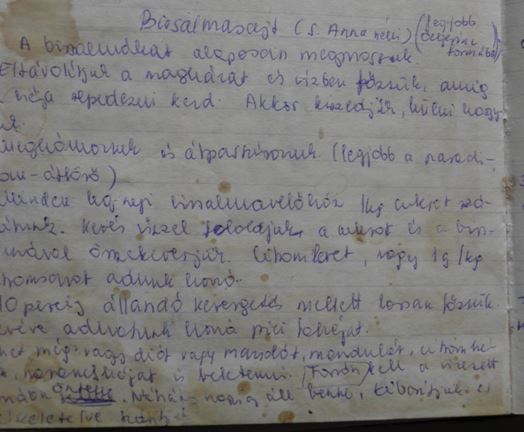 Birsalmasajt (S. Anna néni) (legjobb őzgerinc formába)
A birsalmákat alaposan megmossuk.
Eltávolítjuk a magházát és vízben főzzük, amíg
a héja repedezni kezd. Akkor kiszedjük, hűlni hagy-
juk.
Meghámozzuk és átpasszírozzuk (legjobb a paradi-
com-áttörő)
Minden kg-nyi birsalmavelőhöz 1 kg cukrot szá-
ítunk. Kevés vízzel feloldjuk a cukrot és a birs-
almával összekeverjük. Citromlevet, vagy 1 g/kg
citromsavat adunk hozzá.
10 percig állandó kevergetés mellett lassan főzzük.
adhatunk hozzá pici fahéjat.
het még vagy diót vagy mazsolát, mandulát, citromhé-
narancshéjat is beletenni. Forrón kell a vizezett
Néhány napig áll benne, kiborítjuk és